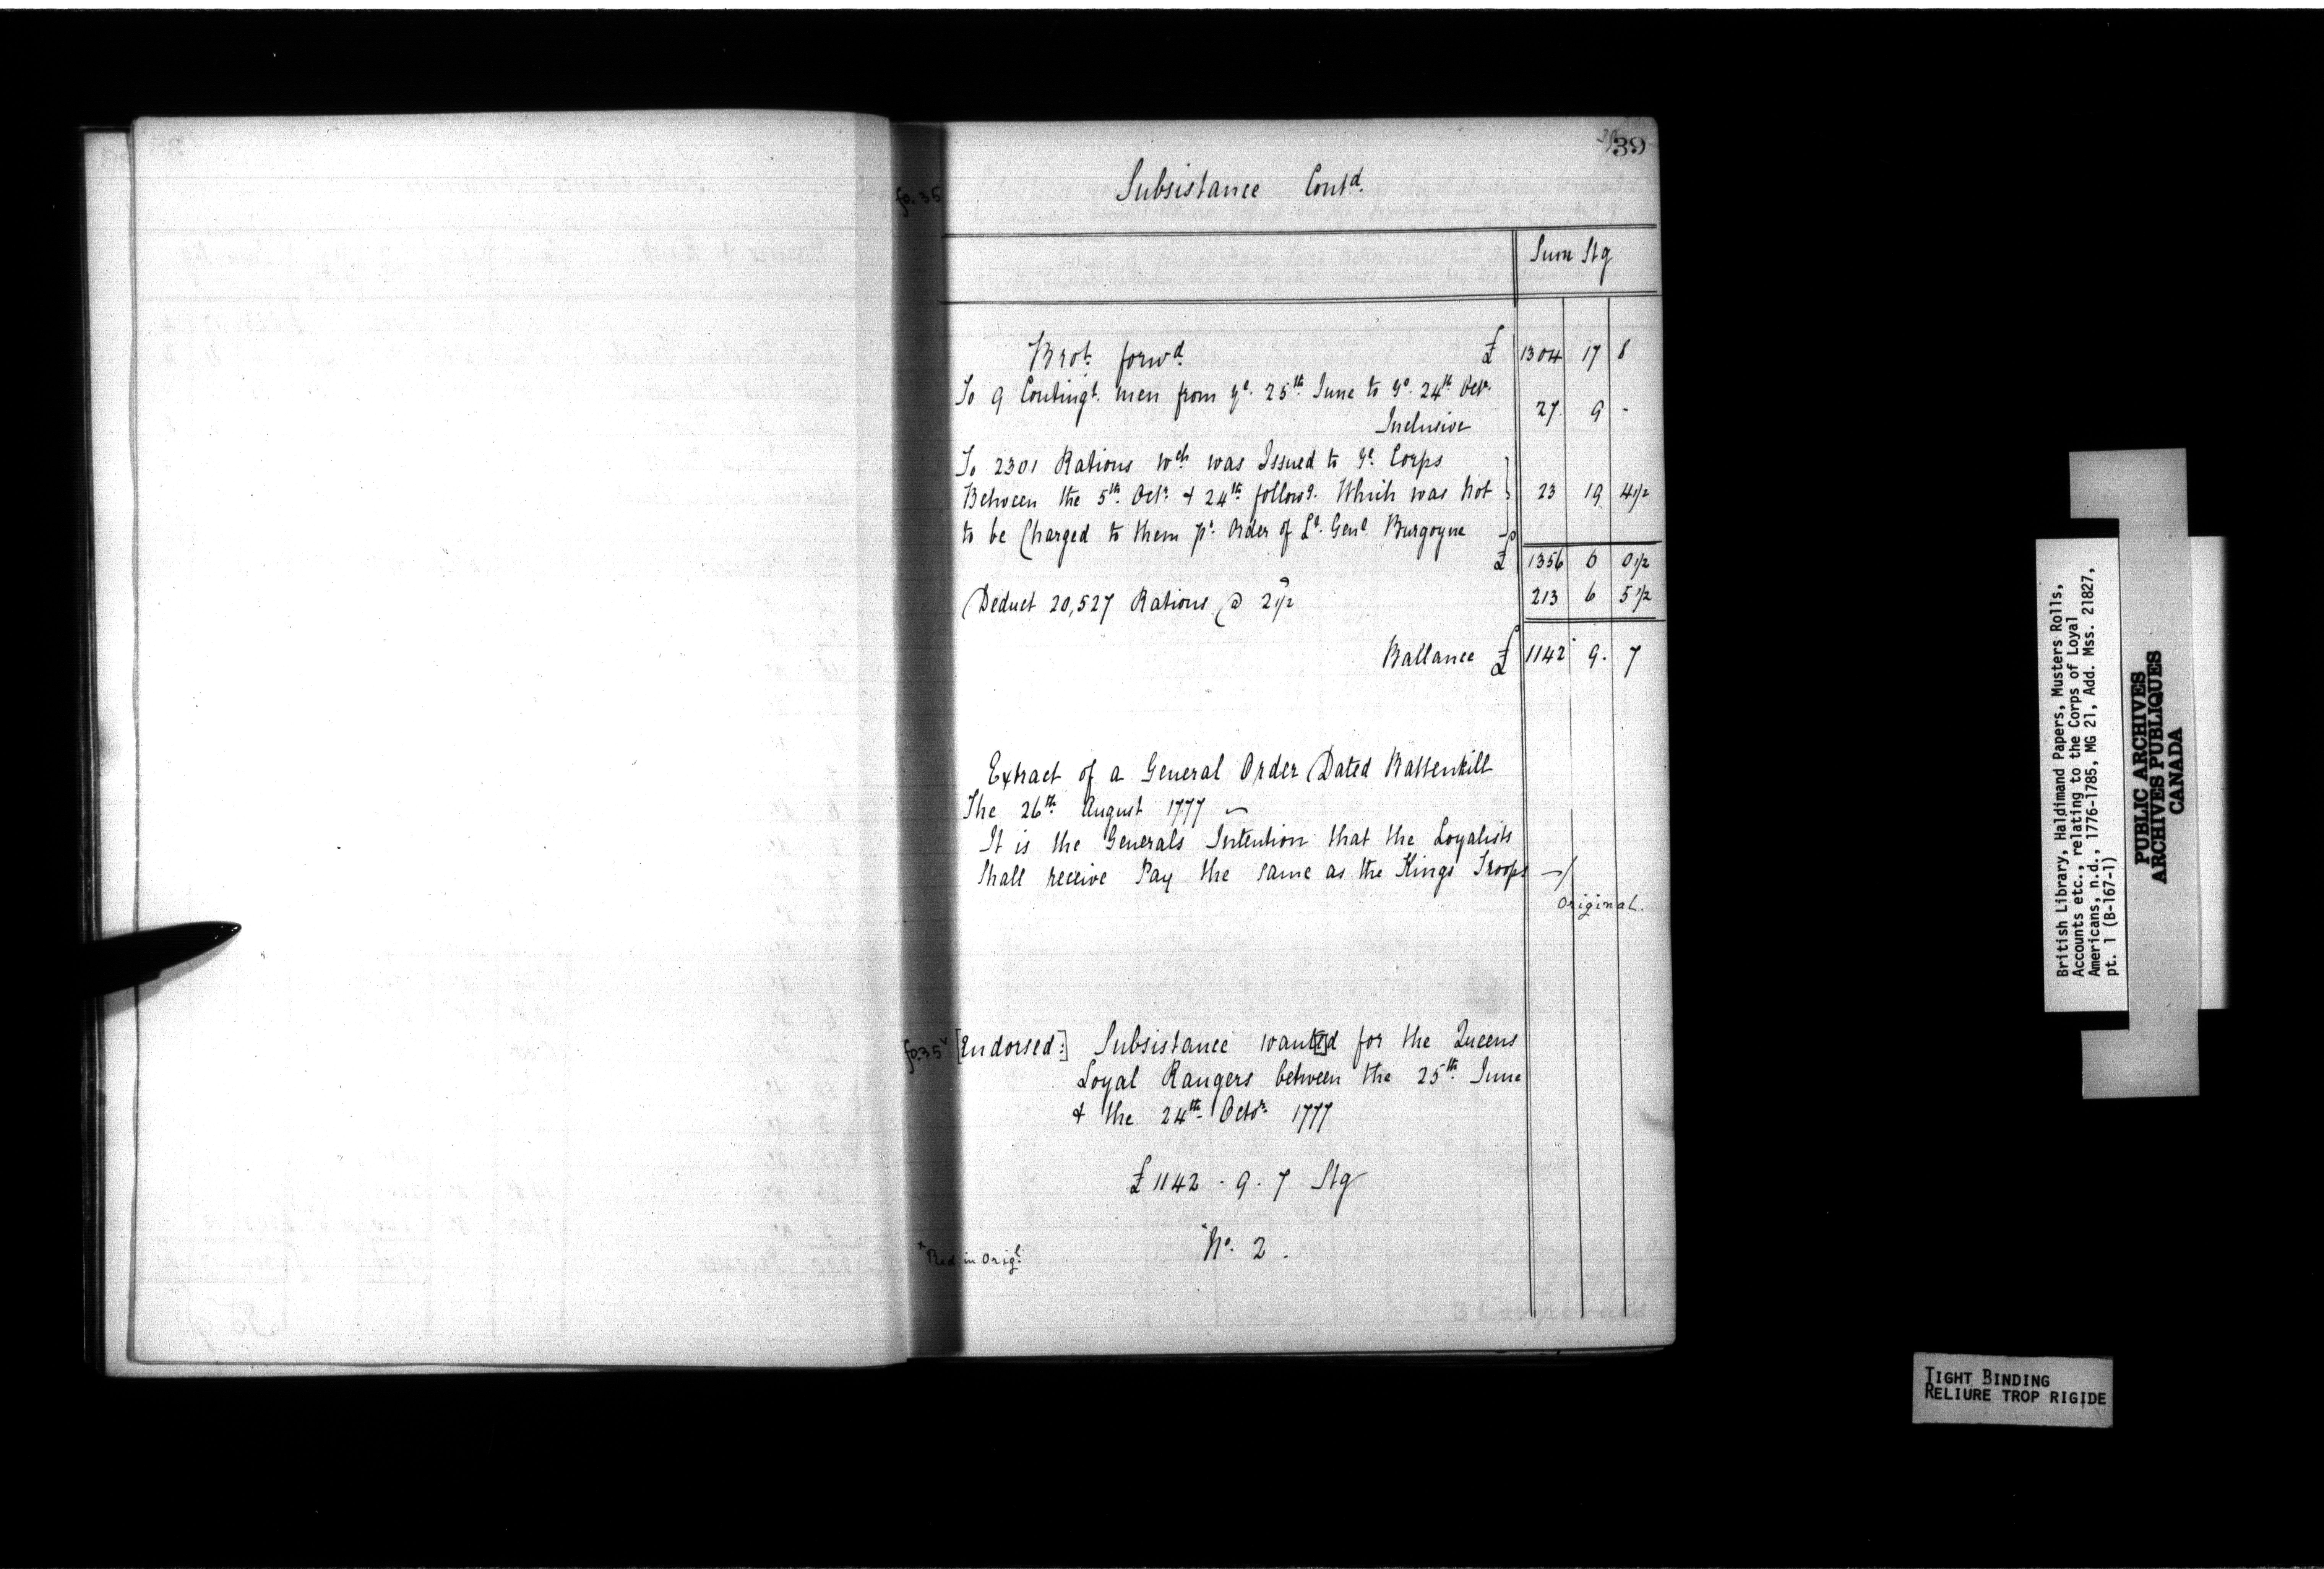 39
fo. 35
Subsistance Contd.
Sum Stg
Brot. forwd. £ 1304 17 8
To 9 Contingt. men from ye. 25th June to ye. 24th Octr.
Inclusive 27 9 -
To 2301 Rations wch was Issued to ye. Corps
Between the 5th. Octr. & 24th. followg. Which was not 23 19 4 1/2
to be Charged to them pr. Order of Lt. Genl. Burgoyne
£ 1356 6 0 1/2
Deduct 20,527 Rations @ 2 1/2 213 6 5 1/2
Ballance £ 1142 9. 7
Extract of a General Order Dated Battenkill
The 26th. August 1777 ~
It is the Generals Intention that the Loyalists
Shall receive Pay the same as the Kings Troops —/
Original.
fo.35v [Endorsed:] Subsistance want[e]d for the Queens
Loyal Rangers between the 25th. June
& the 24th. Octor. 1777
£1142 . 9 . 7 Stg
xNo. 2.
x Red in Origl.
British Library, Haldimand Papers, Musters Rolls,
Accounts etc., relating to the Corps of Loyal
Americans, n.d., 1776-1785, MG 21, Add. Mss. 21827,
pt. 1 (B-167-1)
PUBLIC ARCHIVES
ARCHIVES PUBLIQUES
CANADA
TIGHT BINDING
RELIURE TROP RIGIDE